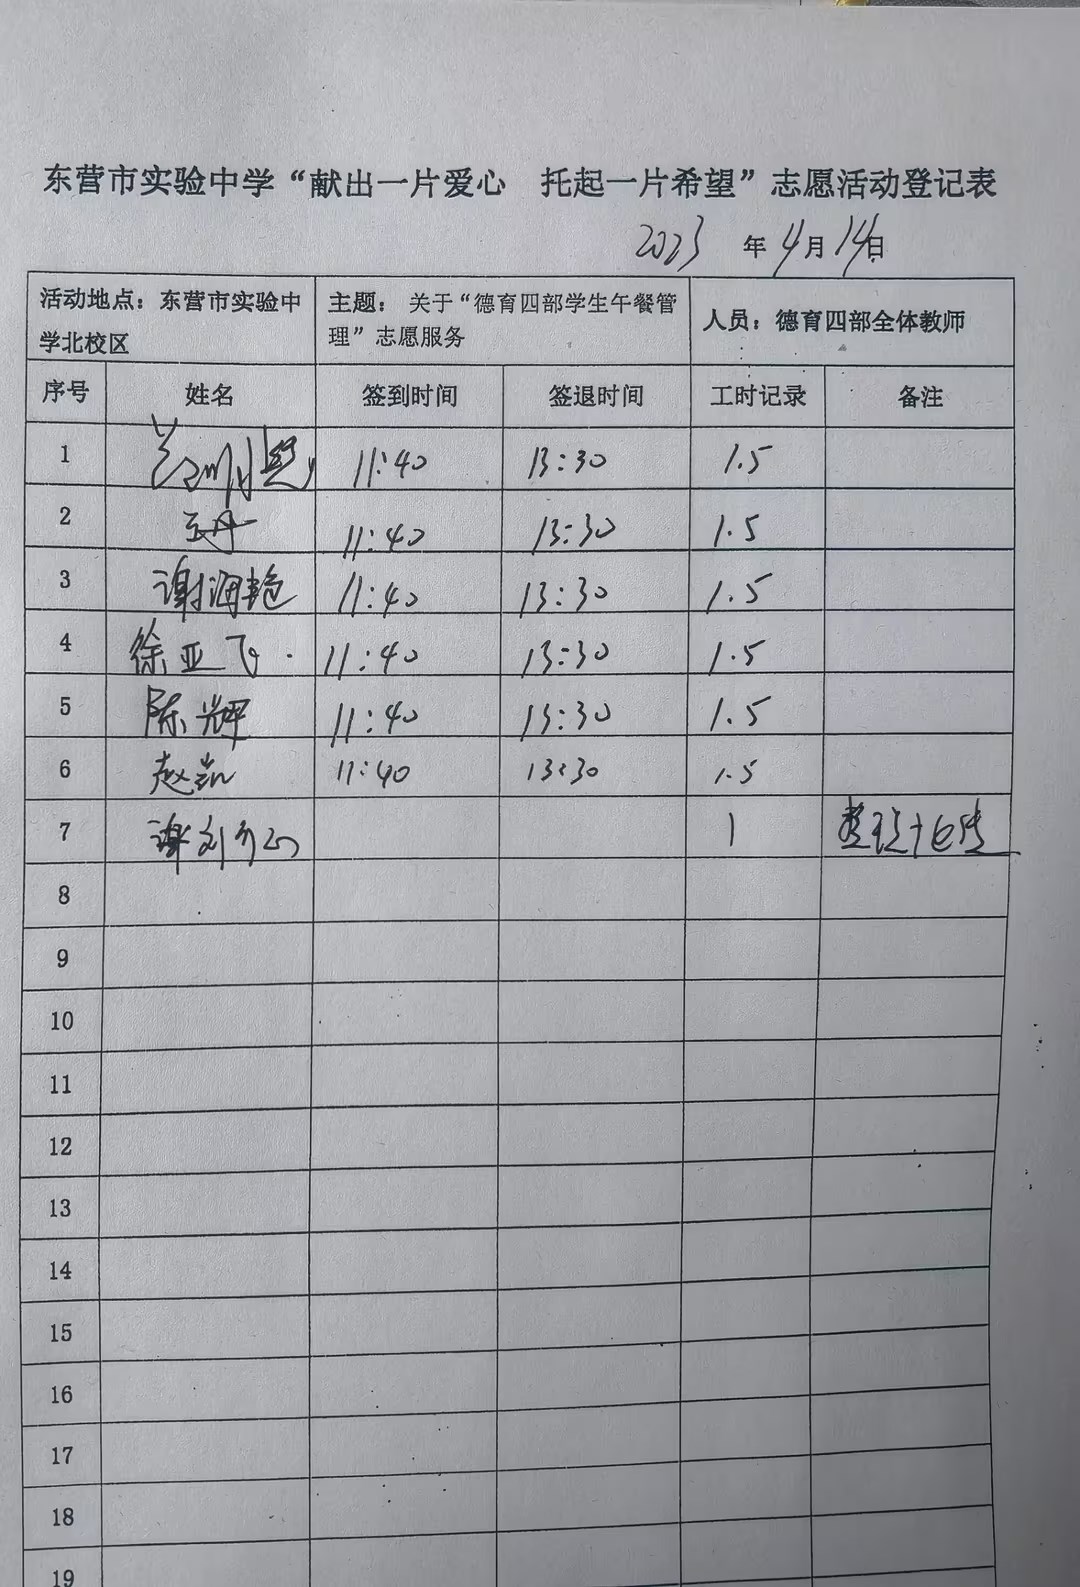 东营市实验中学“献出一片爱心 托起一片希望”志愿活动登记表
2023 年 4月 14日
活动地点：东营市实验中学北校区 主题：关于“德育四部学生午餐管理”志愿服务 人员：德育四部全体教师
序号 姓名 签到时间 签退时间 工时记录 备注
1 11:40 13:30 1.5
2 11:40 13:30 1.5
3 谢海艳 11:40 13:30 1.5
4 徐亚飞 11:40 13:30 1.5
5 陈辉 11:40 13:30 1.5
6 赵凯 11:40 13:30 1.5
7 1
8
9
10
11
12
13
14
15
16
17
18
19